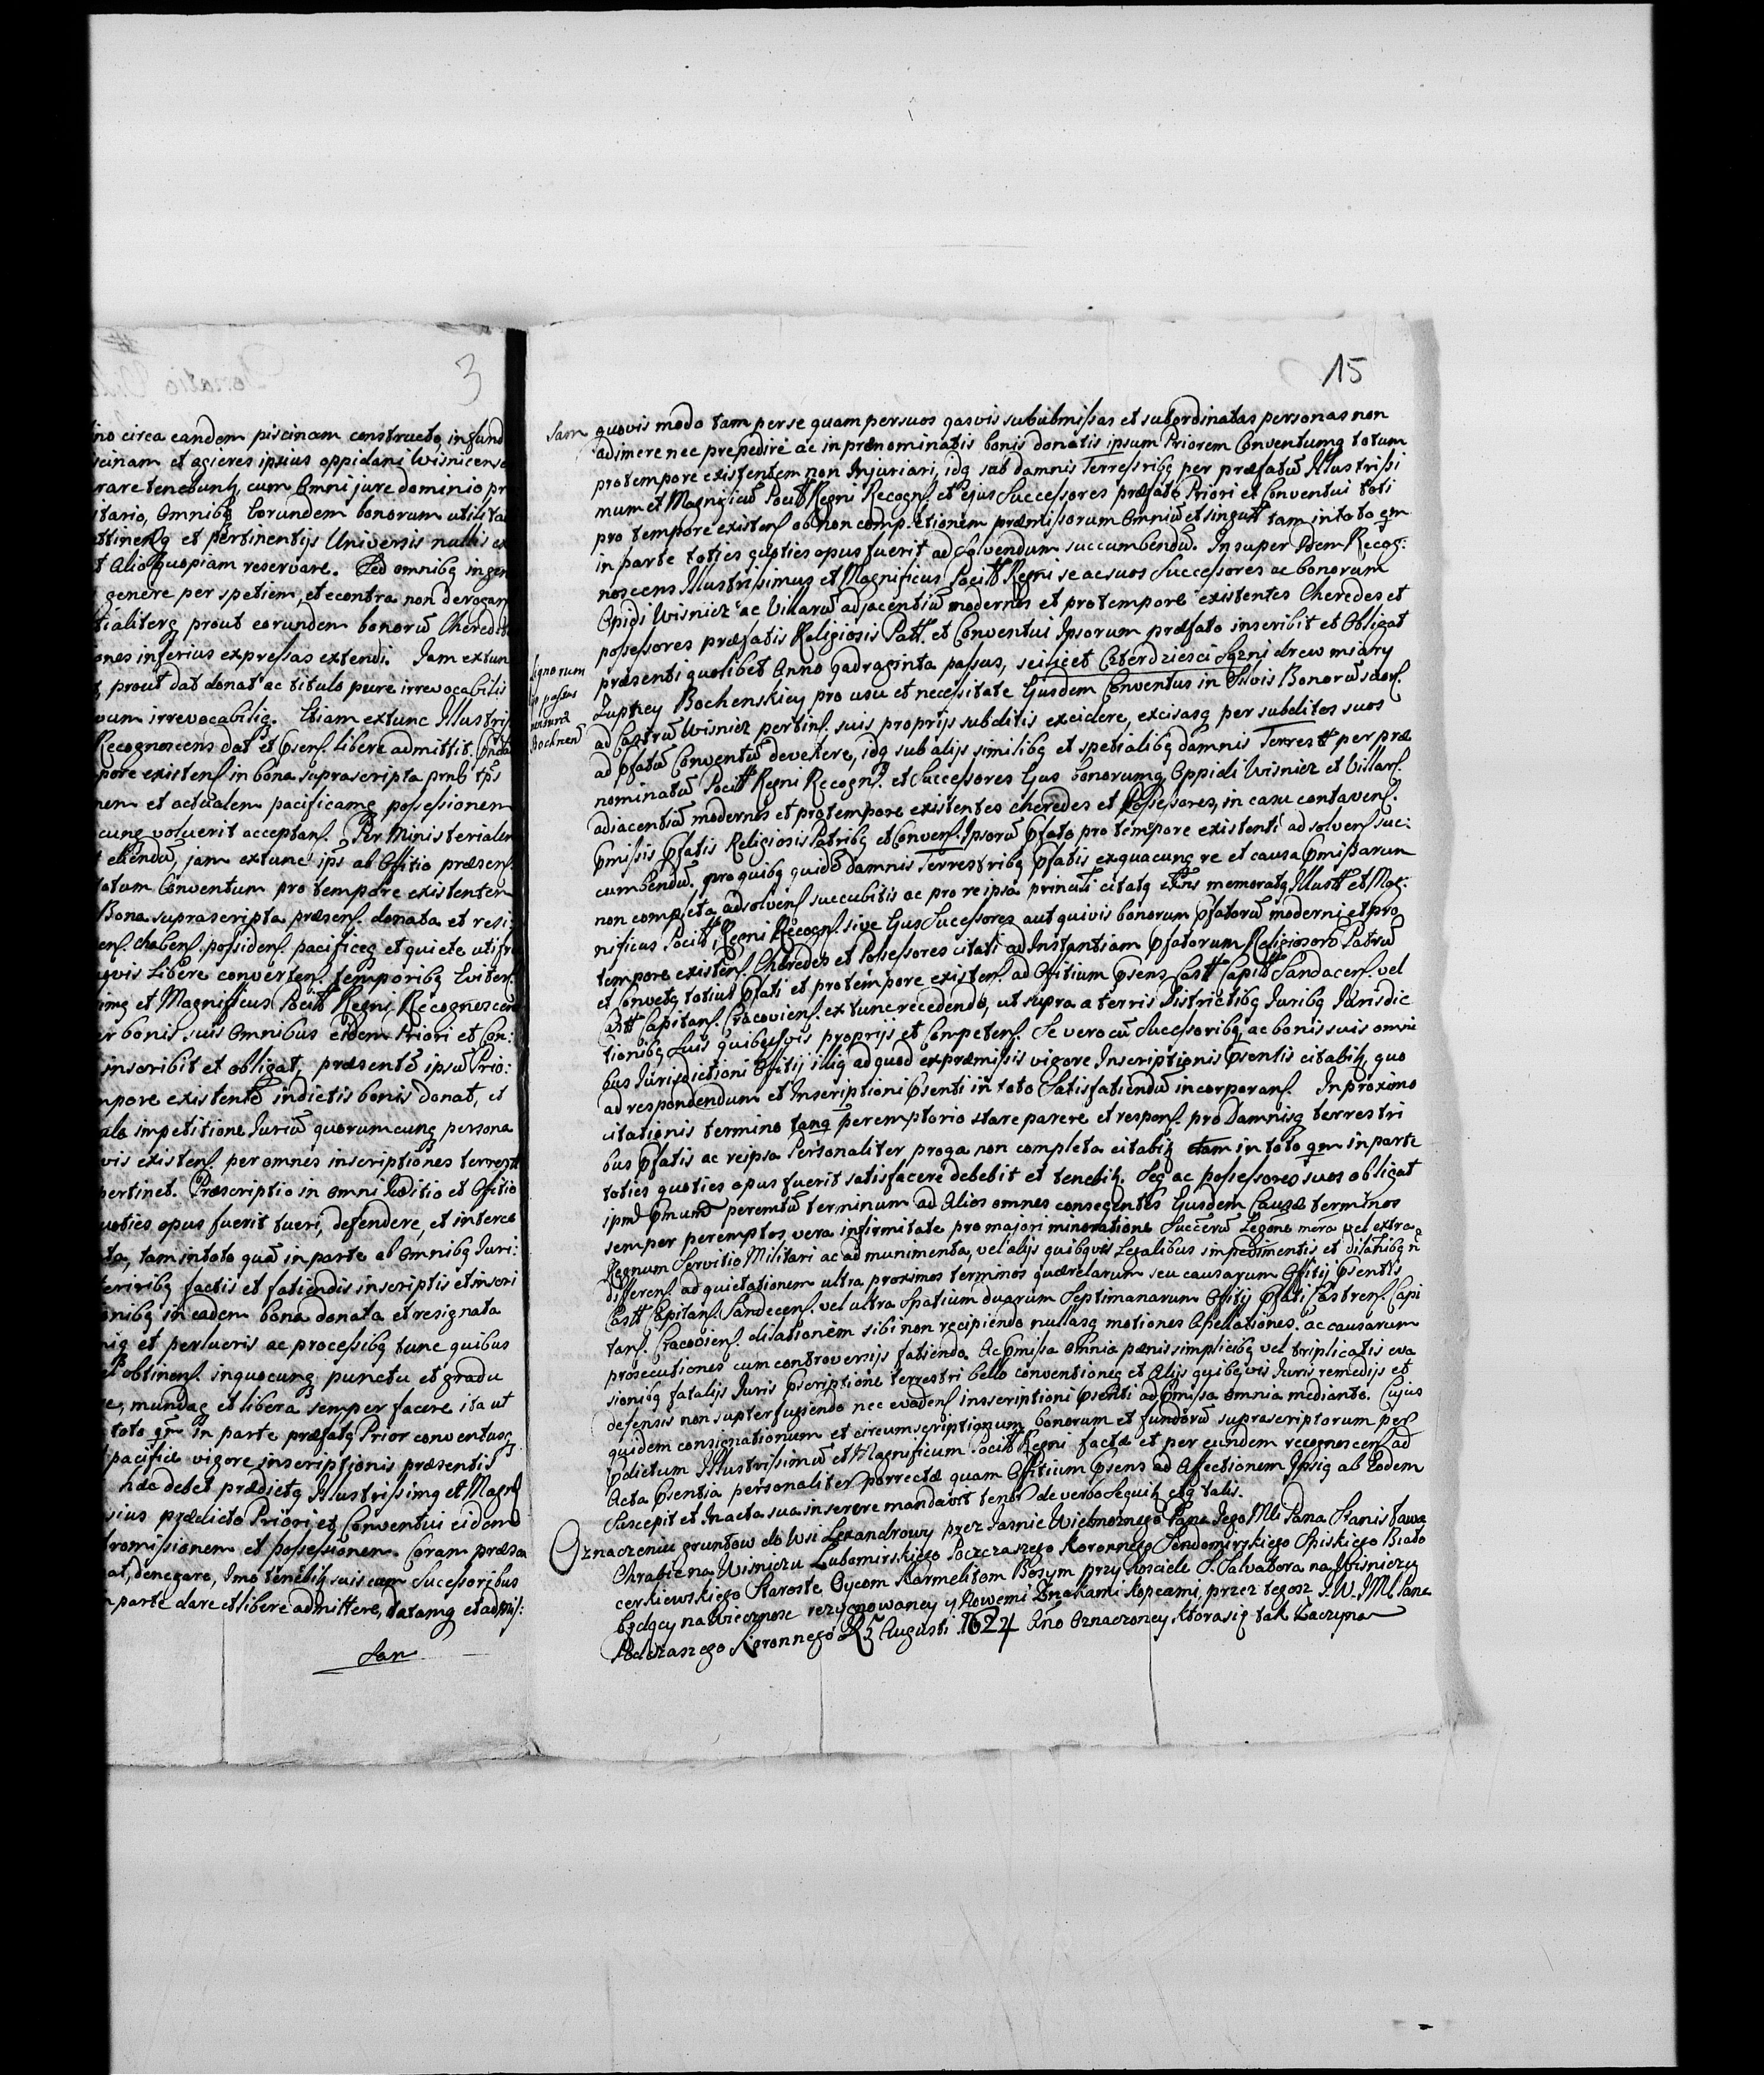 3
ino circa eandem piscinam constructo, in fund
scinam et agieres ipsius oppidani Wisnicense
rare tenebunt, cum Omni jure dominio pr
itario, Omnibq Eorundem bonorum utilita
ttinensq et Pertinentijs Universis nullis ex
t Alio quopiam reservare. Sed omnibq in gen
genere per spetiem, et econtra non derogan
tialiterq prout eorundem bonorũ Cheredita
ones inferius expressas extendi. Iam extun
t, prout dat donat ac titulo pure irrevocabilis
vum irrevocabiliq. Etiam extunc Illustriss
Recognoscens dat et Cpsens. libere admittit.
pore existens in bona suprascripta
nem et actualem pacificamq possessionem
cunq voluerit acceptans. Per Ministerialem
jam extunc ips ab Offitio præsens
totum Conventum pro tempore existentem
Bona suprascripta præsens. donata et resi
ens. chabens. possidens. pacificeq et quiete
qvis Libere convertens. temporibq Eviters
imq et Magnificus Pocill Regni Recognoscens
r bonis suis Omnibus eidem Priori et Con:
inscribit et obligat, præsentẽ ipsũ Prio:
mpore existentẽ in dictis bonis donat, et
ale impetitione Juriũ quorumcunq persona
vis existens. per omnes inscriptiones terrest
pertinet. Præscriptio in omni Juditio et Offitio
uoties opus fuerit tueri, defendere, et interce
ta, tam in toto quã in parte ab Omnibq Juri:
teriribq factis et fatiendis inscriptis et inscri
onibq in eadem bona donata et resignata
niq et perlucris ac processibq tunc quibus
obtinens. in quocunq punctu et gradu
e, mundaq et libera semper facere ita ut
toto qm in parte præfatq Prior conventusq
pacifice vigore inscriptionis præsentis
hac debet prædictq Illustrissimq et Magnf
sius prædicto Priori et Conventui eidem
tromissionem et possessionem. Coram præsen
at, denegare, Imo tenebitz suis cum Sucessoribus
parte dare et libere admittere, datamq et admis:
Sam
15
Sam quovis modo tam per se quam per suos qasvis sububmissas et subordinatas personas non
adimere nec prepedire ac in prænominatis bonis donatis ipsum Priorem Conventumq totum
pro tempore existentem non Injuriari, idq sub damnis Terrestribq per præfatũ Illustrissi
mum et Magnificũ Pocill Regni Recogns. et ejus Successores præfato Priori et Conventui toti
pro tempore existens ob non completionem præmissorum Omniũ et singull tam in toto qm
in parte toties qoties opus fuerit ad solvendum succumbendũ. Insuper Idem Recog:
noscens Illustrissimus et Magnificus Pocill Regni se ac suos Successores ac bonorum
Opidi Wisnicz ac Villarũ adjacentiũ modernos et pro tempore existentes Cheredes et
possessores præfatis Religiosis Patt. et Conventui Ipsorum præfato inscribit et Obligat
præsenti quolibet Anno qadraginta passus, scilicet Czterdziesci Sązni drew miary
Zupney Bochenskiey pro usu et necessitate Ejusdem Conventus in Silvis Bonorũ
ad Castrũ Wisnicz pertins. suis proprijs subditis excidere, excisasq per subditos suos
ad Cpfatũ Conventũ devehere, idq sub alijs similibq et spetialibq damnis Terrestt per præ
nominatũ Pocill Regni Recogns. et Successores Ejus bonorumq Oppidi Wisnicz et Villars.
adiacentiũ modernos et pro tempore existentes cheredes et possessores, in casu contravens.
Cpmissis Cpfatis Religiosis Patribq et Convens. Ipsorũ Cpfato, pro tempore existenti ad solvens suc:
cumbendũ. pro quibq quidẽ damnis Terrestribq Cpfatis ex quacunq re et causa Cpmissarum
non completa adsolvens succubitis ac pro re ipsa citatq memoratq Illustt et Mag:
nificus Pocill Regni Recogns. sive Ejus Successores aut quivis bonorum Cpfatorũ moderni et pro
tempore existens. Cheredes et Possessores citati ad Instantiam Cpfatorum Religiosorũ Patrũ
et Convetq totius Cpfati et pro tempore existens. ad Offitium Cpsens Castt Capitt Sandacens. vel
Castt Capitans. Cracoviens. extunc recedendo, ut supra a terris Districtibq Juribq Jurisdic
tionibq Suis quibqsvis proprijs et Competens. Se vero cũ Sucessoribq, ac bonis suis omni
bus Jurisdictioni Offitij illiq ad quod ex præmissis vigore Inscriptionis Cpsentis citabitz, quo
ad respondendum et Inscriptioni Cpsenti in toto Satisfatiendũ incorporans. In proximo
citationis termino tanq peremptorio stare parere et respons. pro Damnisq terrestri
bus Cpfatis ac reipsa Personaliter proqa non completa citabitz tam in toto qm in parte
toties quoties opus fuerit satisfacere debebit et tenebitz. Seq ac possessores suos obligat
peremtũ terminum ad Alios omnes conseqentes Ejusdem Causæ terminos
semper peremptos, vera infirmitate pro majori minoratione mora vel extra
Regnum Servitio Militari ac ad munimenta, vel alijs quibqvis Legalibus impedimentis et dilatibq
differens. ad quietationem ultra proximos terminos quærelarum seu causarum Offitij Cpsentis
Castt Capitans. Sandecens. vel ultra Spatium duarum Septimanarum Offitij Cpfati Castrens. Capi
tans. Cracoviens. dilationem sibi non recipiendo nullasq motiones Apellationes. ac causarum
prosecutiones cum controversijs fatiendo. Ac Cpmissa Omnia pœnis simplicibq vel triplicatis eva
sionibq fatalijs Juris Cpscriptione terrestri bello conventioneq et Alijs quibqvis Juris remedijs et
defensis non supterfugiendo nec evadens insscriptioni Cpsenti ad Cpmissa omnia mediante. Cujus
quidem consignationum et circumscriptionum bonorum et fundorũ suprascriptorum per
Cpdictum Illustrissimũ et Magnificum Pocill Regni factæ et per eundem recognoscens. ad
Acta Cpsentia personaliter porrectæ quam Offitium Cpsens ad Affectionem Ipsiq ab Eodem
Suscepit et In acta sua inserere mandavit tenor de verbo Sequitz estq talis.
Oznaczeniu gruntow do Wsi Lexandrowy przez Jasnie Wielmoznego Pana Jego Mci Pana Stanisława
Chrabie na Wisniczu Lubomirskiego Poczcaszego Koronnego Sendomirskiego Spiskiego Biało
cerkiewskiego Staroste Oycom Karmelitom Bosym przy Kosciele S. Salvatora na Wisniczu
będący na Wiecznosc rezygnowaney y Nowemi Znakami kopcami, przez tegosz J. W. JMl Pana
Podczaszego Koronnego 25 Augusti 1624 Año Oznaczoney która się tak Zaczyna
Lignorum
passus
mensuræ
Bochnens